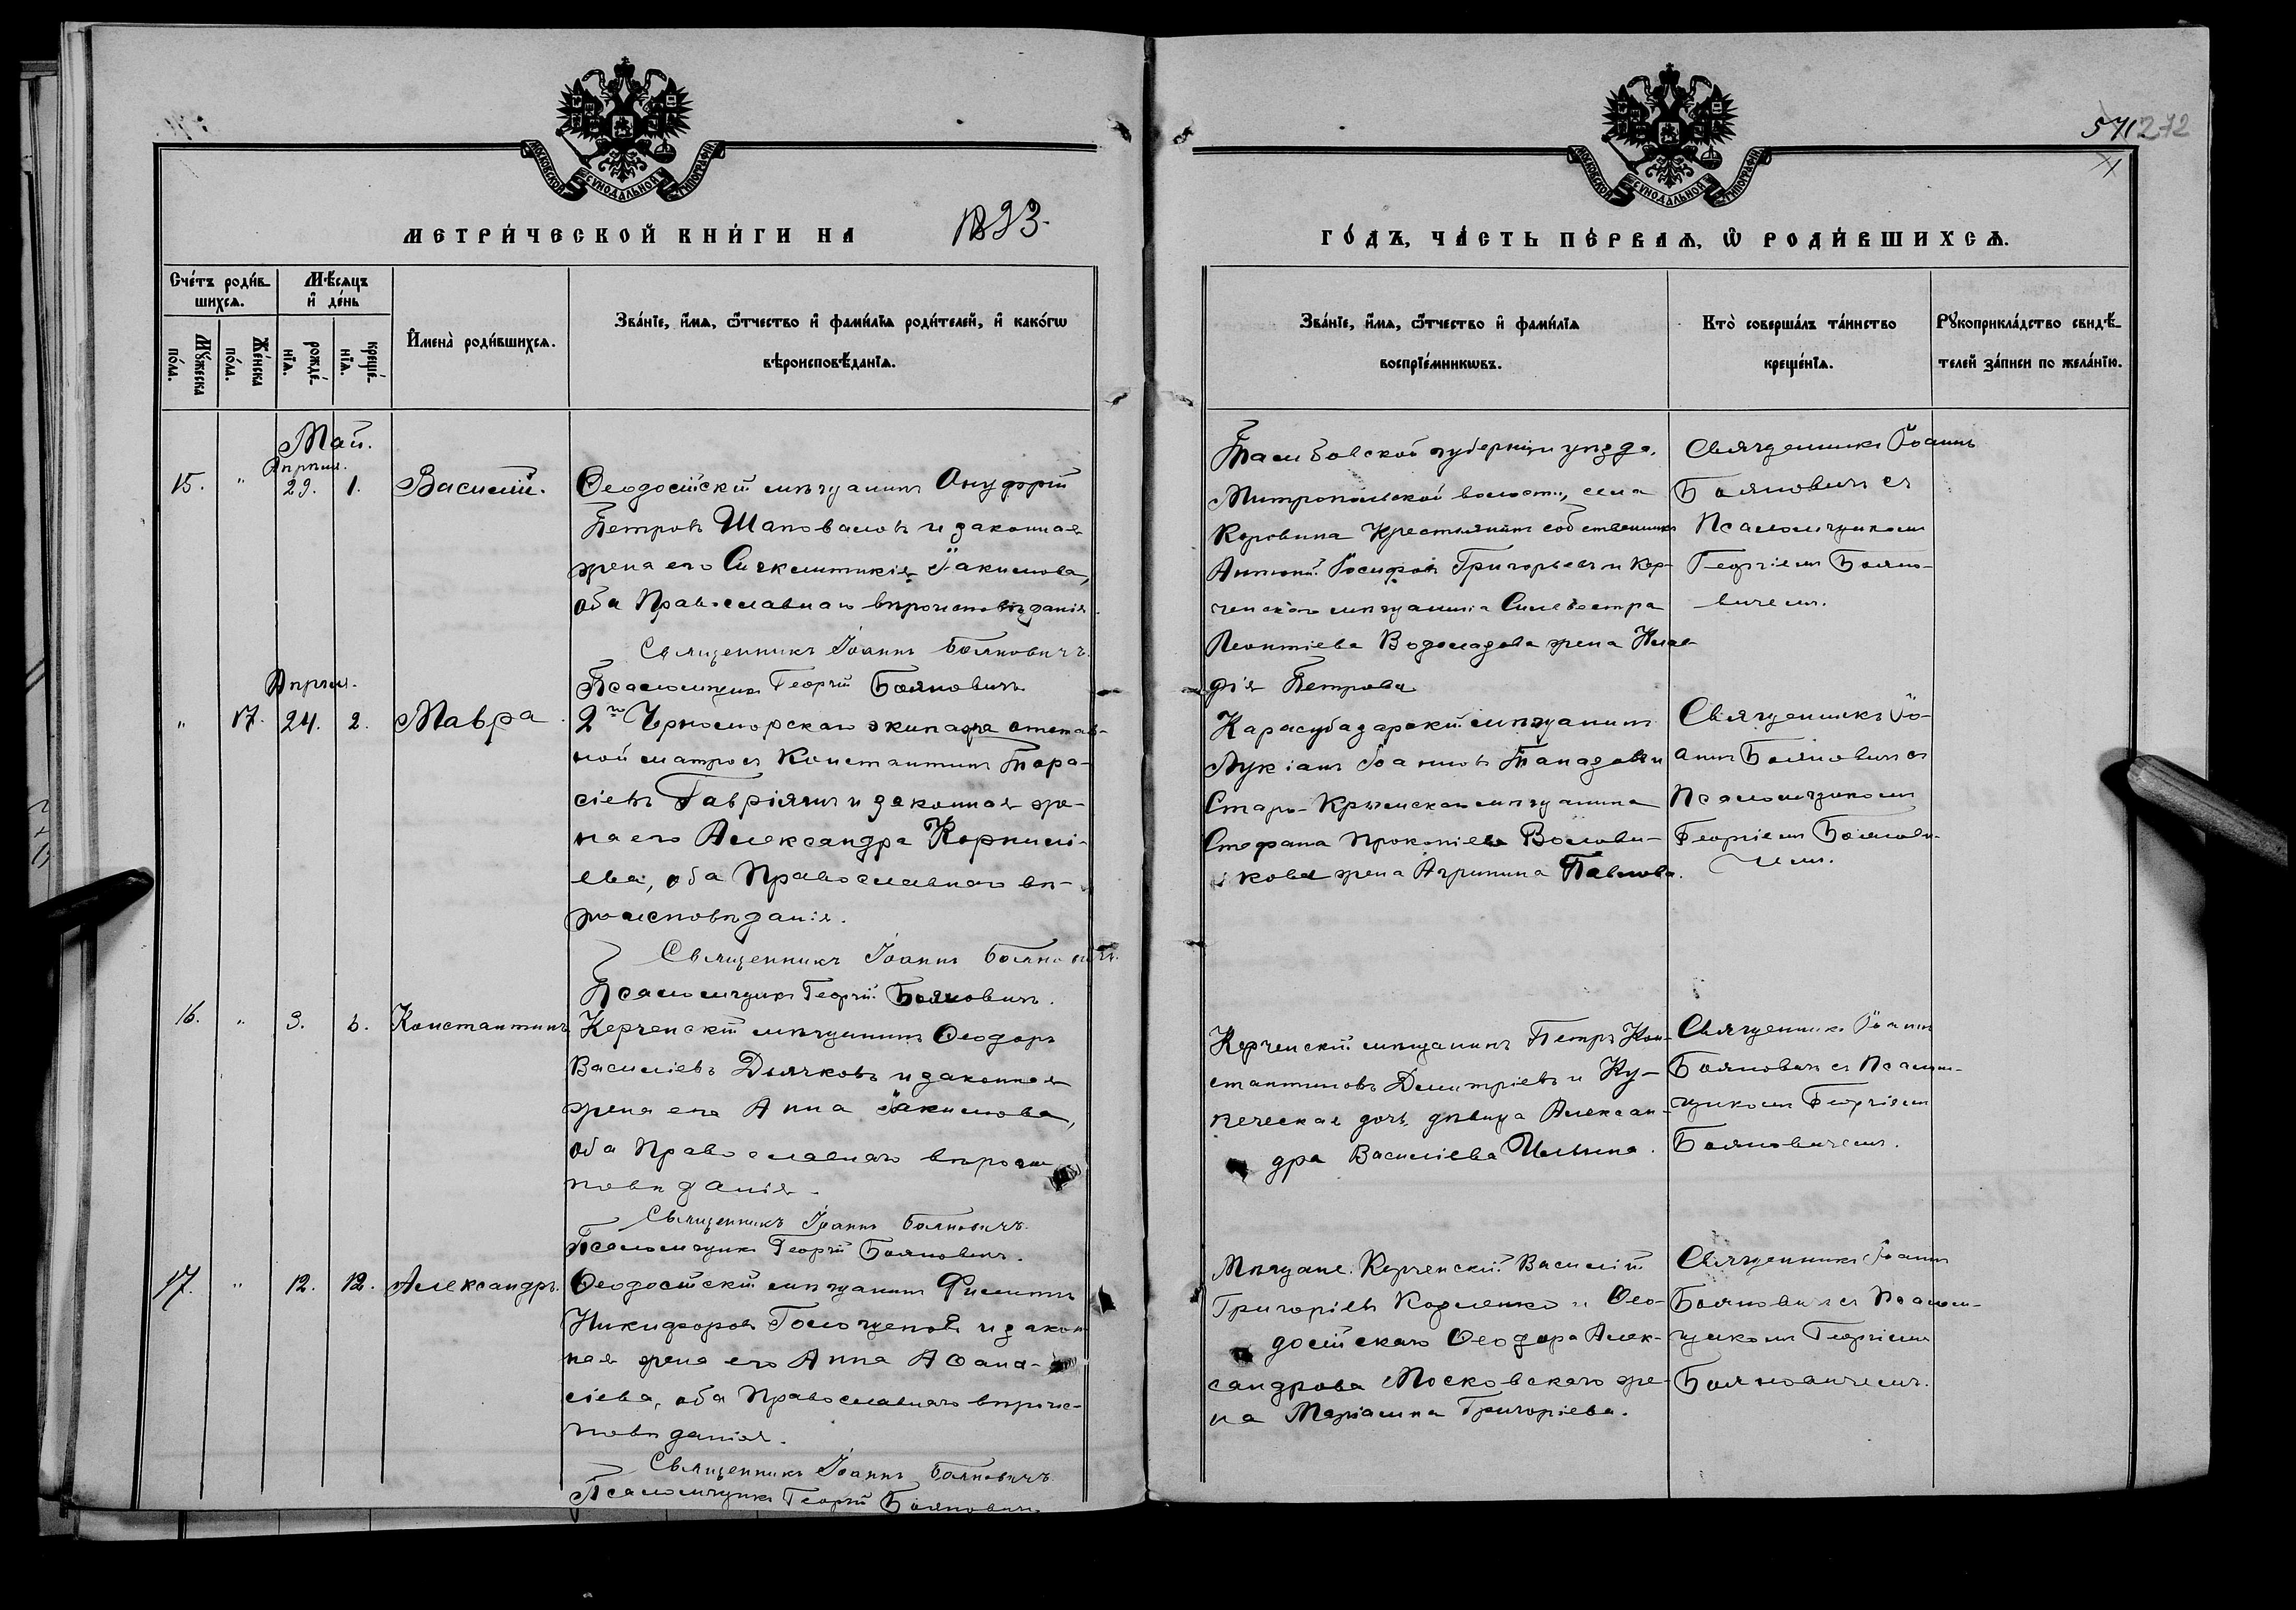 571 272
МОСКОВСКОЙ СѴНОДАЛЬНОЙ ТИПОГРАФІИ
МОСКОВСКОЙ СѴНОДАЛЬНОЙ ТИПОГРАФІИ
МЕТРИ́ЧЕСКОЙ КНИ́ГИ НА 1893.
ГО́ДЪ, ЧА́СТЬ ПЕ́РВАѦ, Ѡ҆ РОДИ́ВШИХСѦ.
Сче́тъ роди́в-
шихсѧ.
Мꙋ́жеска по́ла.
Же́нска по́ла.
Мѣ́сѧцъ
и҆ де́нь
рожде́-
нїѧ.
креще́-
нїѧ.
И҆мена̀ роди́вшихсѧ.
Зва́нїе, и҆́мѧ, ѻ҆́тчество и҆ фами́лїѧ роди́телей, и҆ како́гѡ
вѣроисповѣ́данїѧ.
Зва́нїе, и҆́мѧ, ѻ҆́тчество и҆ фами́лїѧ
воспрїе́мникѡвъ.
Кто̀ соверша́лъ та́инство
креще́нїѧ.
Рꙋкоприкла́дство свидѣ́-
телей за́писи по жела́нїю.
Май.
Апрѣля.
15. " 29. 1. Василій.
Ѳеодосійскій мѣщанинъ Онуфрій
Петровъ Шаповаловъ и законная
жена его Іакимова,
оба Православнаго вѣроисповѣданія.
Священникъ Іоаннъ Бояновичъ.
Псаломщикъ Георгій Бояновичъ
Тамбовской губерніи уѣзда,
Митропольской волости, села
Коровина Крестьянинъ собственникъ
Антоній Іосифовъ Григорьевъ и Кер-
ченскаго мѣщанина Сильвестра
Леонтіева Водоладова жена Клав-
дія Петрова
Священникъ Іоаннъ
Бояновичъ съ
Псаломщикомъ
Георгіемъ Бояно-
вичемъ.
Апрѣля.
" 17. 24. 2. Мавра
2го Черноморскаго экипажа отстав-
ной матросъ Константинъ Тара-
сіевъ и законная же-
на его Александра Корнилі-
ева, оба Православнаго вѣ-
роисповѣданія.
Священникъ Іоаннъ Бояновичъ.
Псаломщикъ Георгій Бояновичъ.
Карасубазарскій мѣщанинъ
Лукіанъ Іоанновъ и
Старо-Крымскаго мѣщанина
Стефана Прокопіева Волови-
кова жена Агрипина Павлова.
Священникъ Іо-
аннъ Бояновичъ съ
Псаломщикомъ
Георгіемъ Боянови-
чемъ.
16. " 3. 6. Константинъ
Керченскій мѣщанинъ Ѳеодоръ
Василіевъ Дьячковъ и законная
жена его Анна Іакимова,
оба Православнаго вѣроис-
повѣданія.
Священникъ Іоаннъ Бояновичъ.
Псаломщикъ Георгій Бояновичъ.
Керченскій мѣщанинъ Петръ Кон-
стантиновъ Димитріевъ и Ку-
печеская дочь дѣвица Алексан-
дра Василіева Ильина.
Священникъ Іоаннъ
Бояновичъ съ Псалом-
щикомъ Георгіемъ
Бояновичемъ.
17. " 12. 12. Александръ.
Ѳеодосійскій мѣщанинъ Филиппъ
Никифоровъ и закон-
ная жена его Анна Аѳана-
сіева, оба Православнаго вѣроис-
повѣданія.
Священникъ Іоаннъ Бояновичъ
Псаломщикъ Георгій Бояновичъ
Мѣщане. Керченскій Василій
Григоріевъ Козленко и Ѳео-
досійскаго Ѳеодора Алек-
сандрова Московскаго же-
на Маріамна Григоріева.
Священникъ Іоаннъ
Бояновичъ съ Псалом-
щикомъ Георгіемъ
Бояновичемъ.